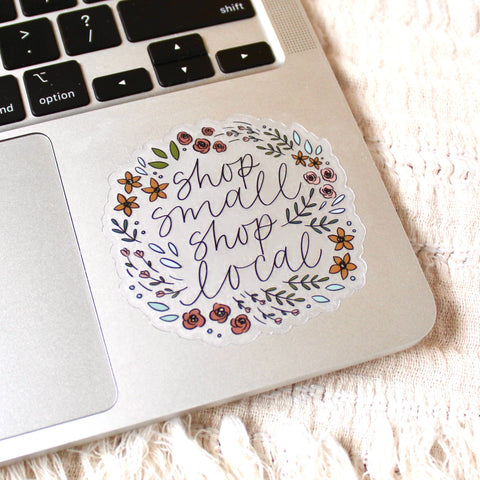 shift
?
/
option
shop
small
shop
local